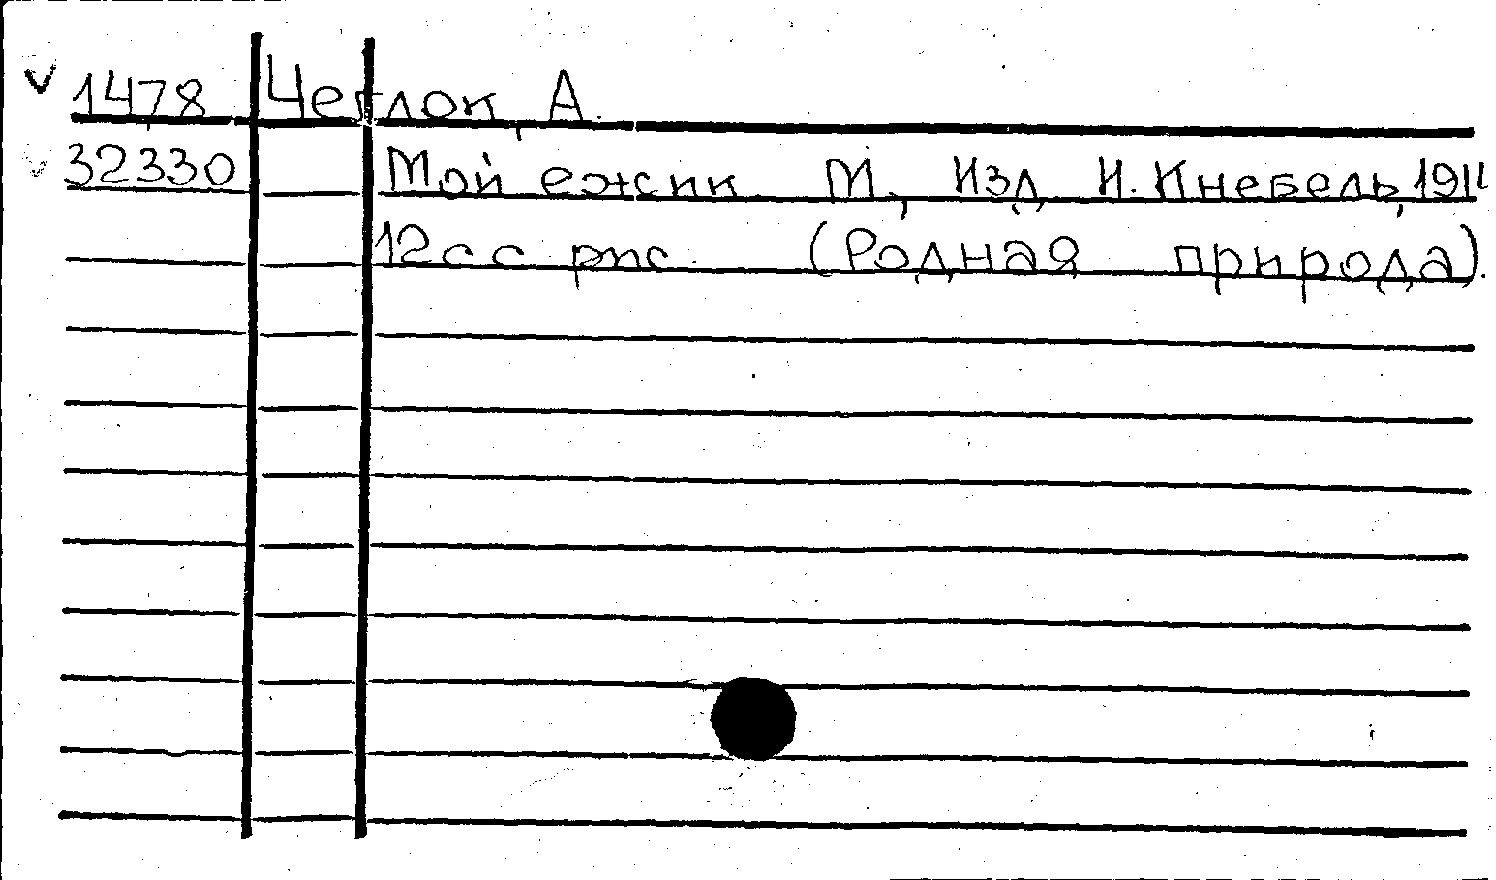 1478 Чеглок, А.
32330 Мой ежик. М., Изд. И. Кнебель,
12 с с рис. (Родная природа).